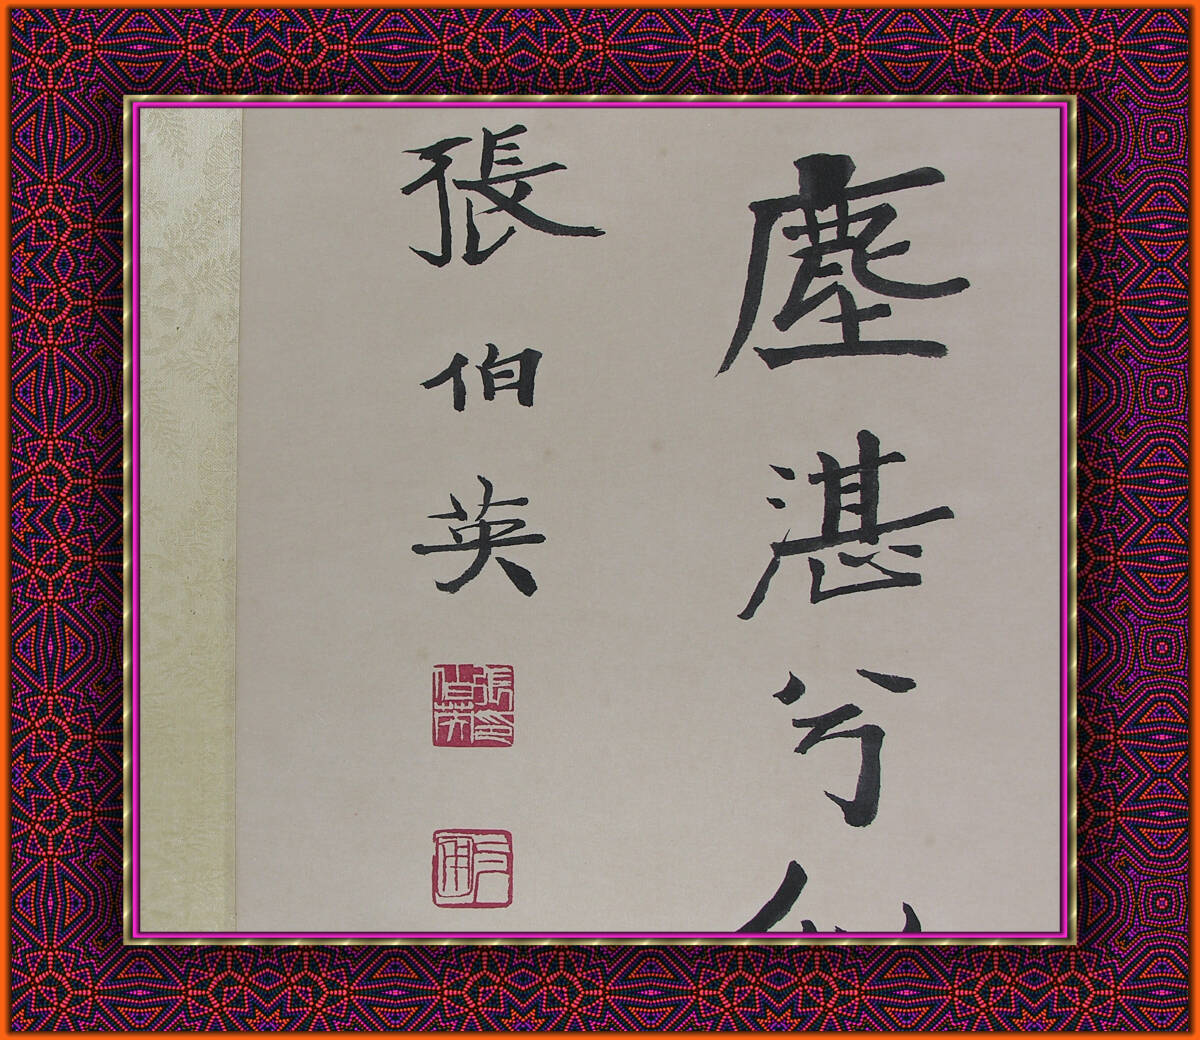 塵湛兮
張伯英
張伯英印